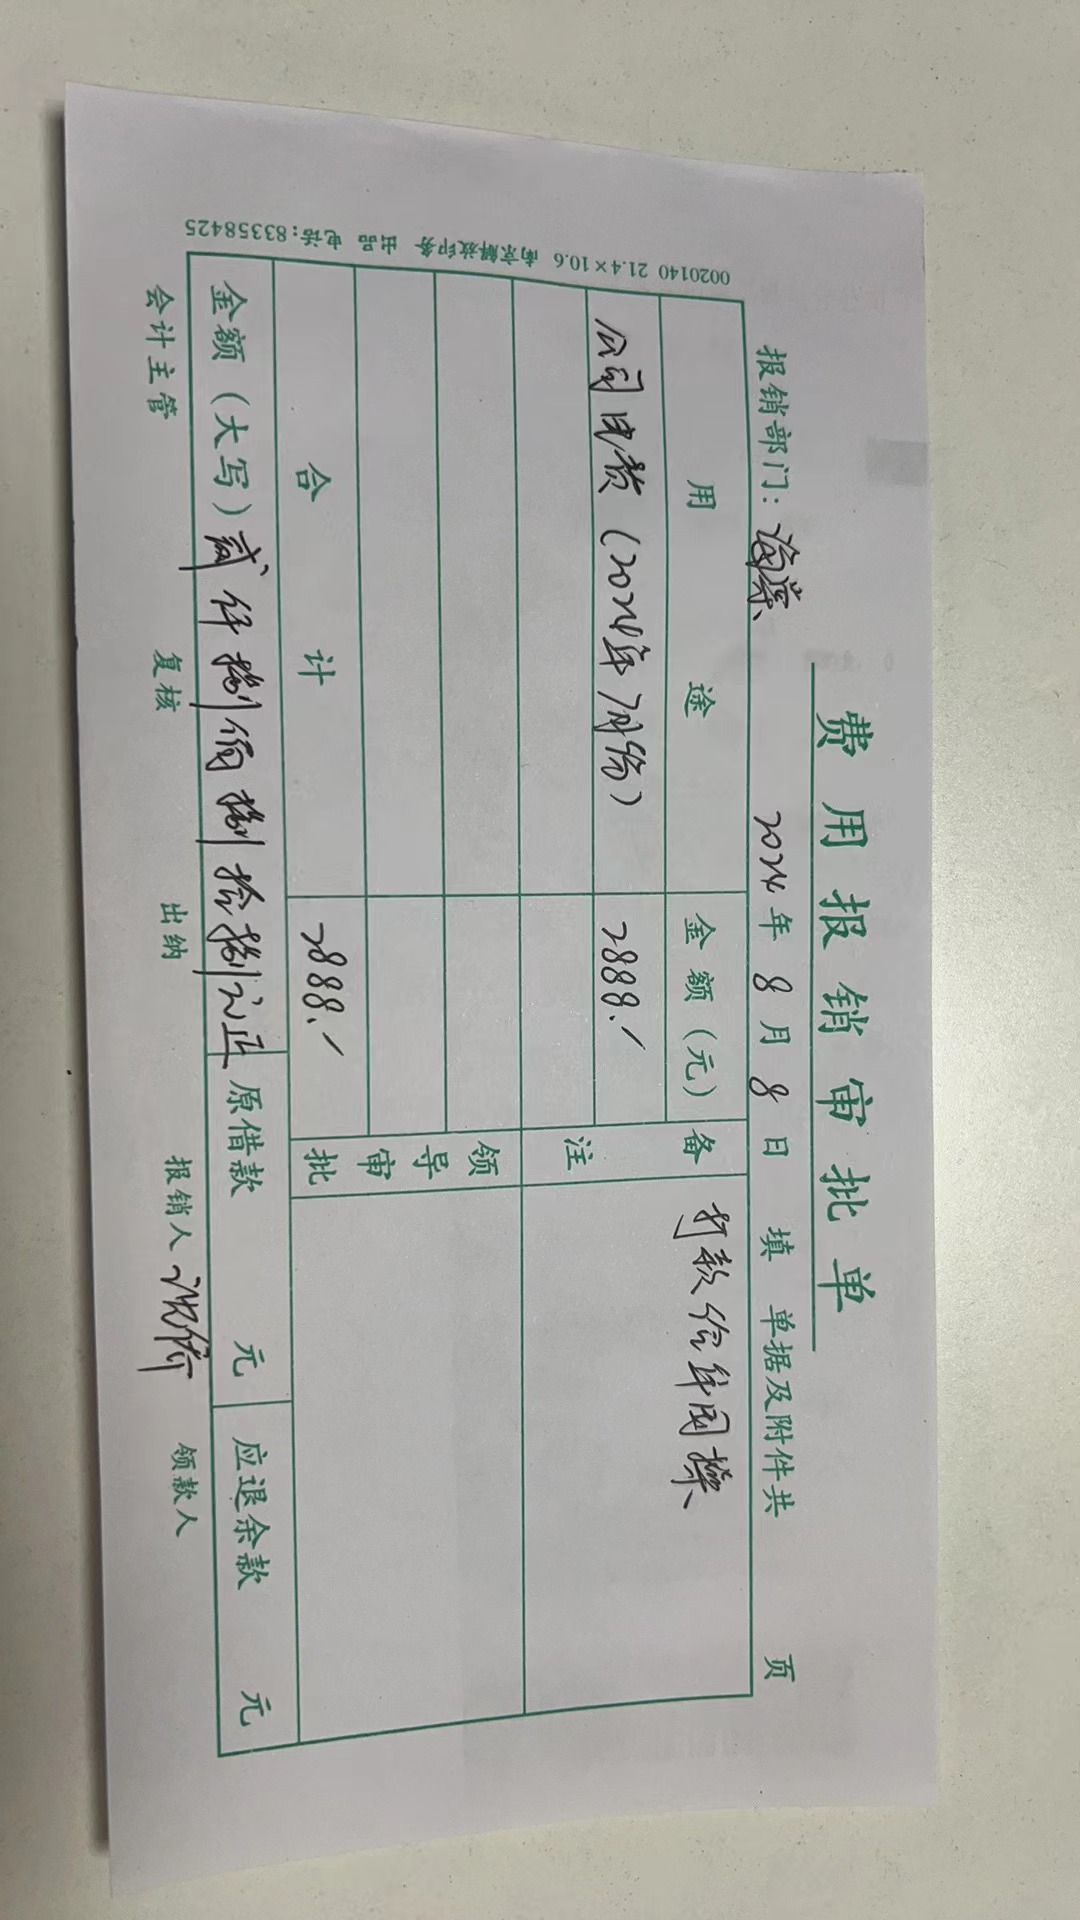 费用报销审批单
报销部门： 2024年8月8日填 单据及附件共 页
用途 金额（元） 备注 打款给年国
公司电费（2024年7月份） 2888.
领导审批
合计 2888.
金额（大写）贰仟捌佰捌拾捌元正 原借款 元 应退余款 元
会计主管 复核 出纳 报销人 领款人
0020140 21.4×10.6 南京解放印务 出品 电话：83358425